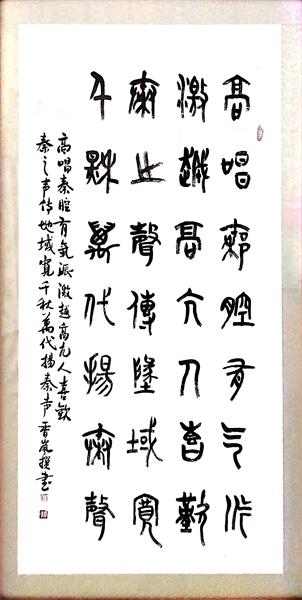 高唱秦腔有气派
激越高亢人喜歡
秦之聲傳地域寬
千秋萬代揚秦聲
高唱秦腔有氣派激越高亢人喜歡
秦之声传地域寬千秋萬代揚秦声香嵐撰書